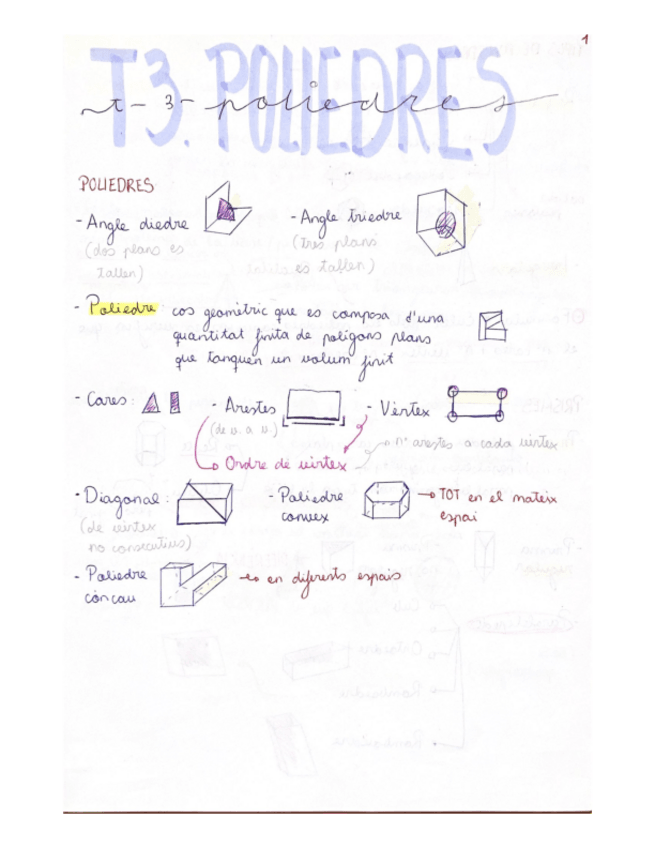 1
T3. POLIEDRES
t-3-poliedres
POLIEDRES
- Angle diedre
(dos plans es
tallen)
- Angle triedre
(tres plans
es tallen)
- Poliedre cos geomètric que es composa d'una
quantitat finita de polígons plans
que tanquen un volum finit
- Cares:
- Arestes
(de v. a v.)
- Vèrtex
nº arestes a cada vèrtex
Ordre de vèrtex
- Diagonal:
(de vèrtex
no consecutius)
- Poliedre
convex
→ TOT en el mateix
espai
- Poliedre
còncau
→ en diferents espais